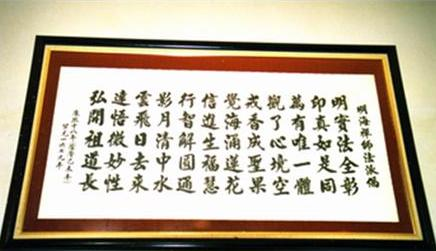 明海禪師法派偈
明實法全彰
印真如是同
萬有唯一體
觀了心境空
戒香成聖果
覺海涌蓮花
信進生福慧
行智解圓通
影月清中水
雲飛日去來
達悟微妙性
弘開祖道長